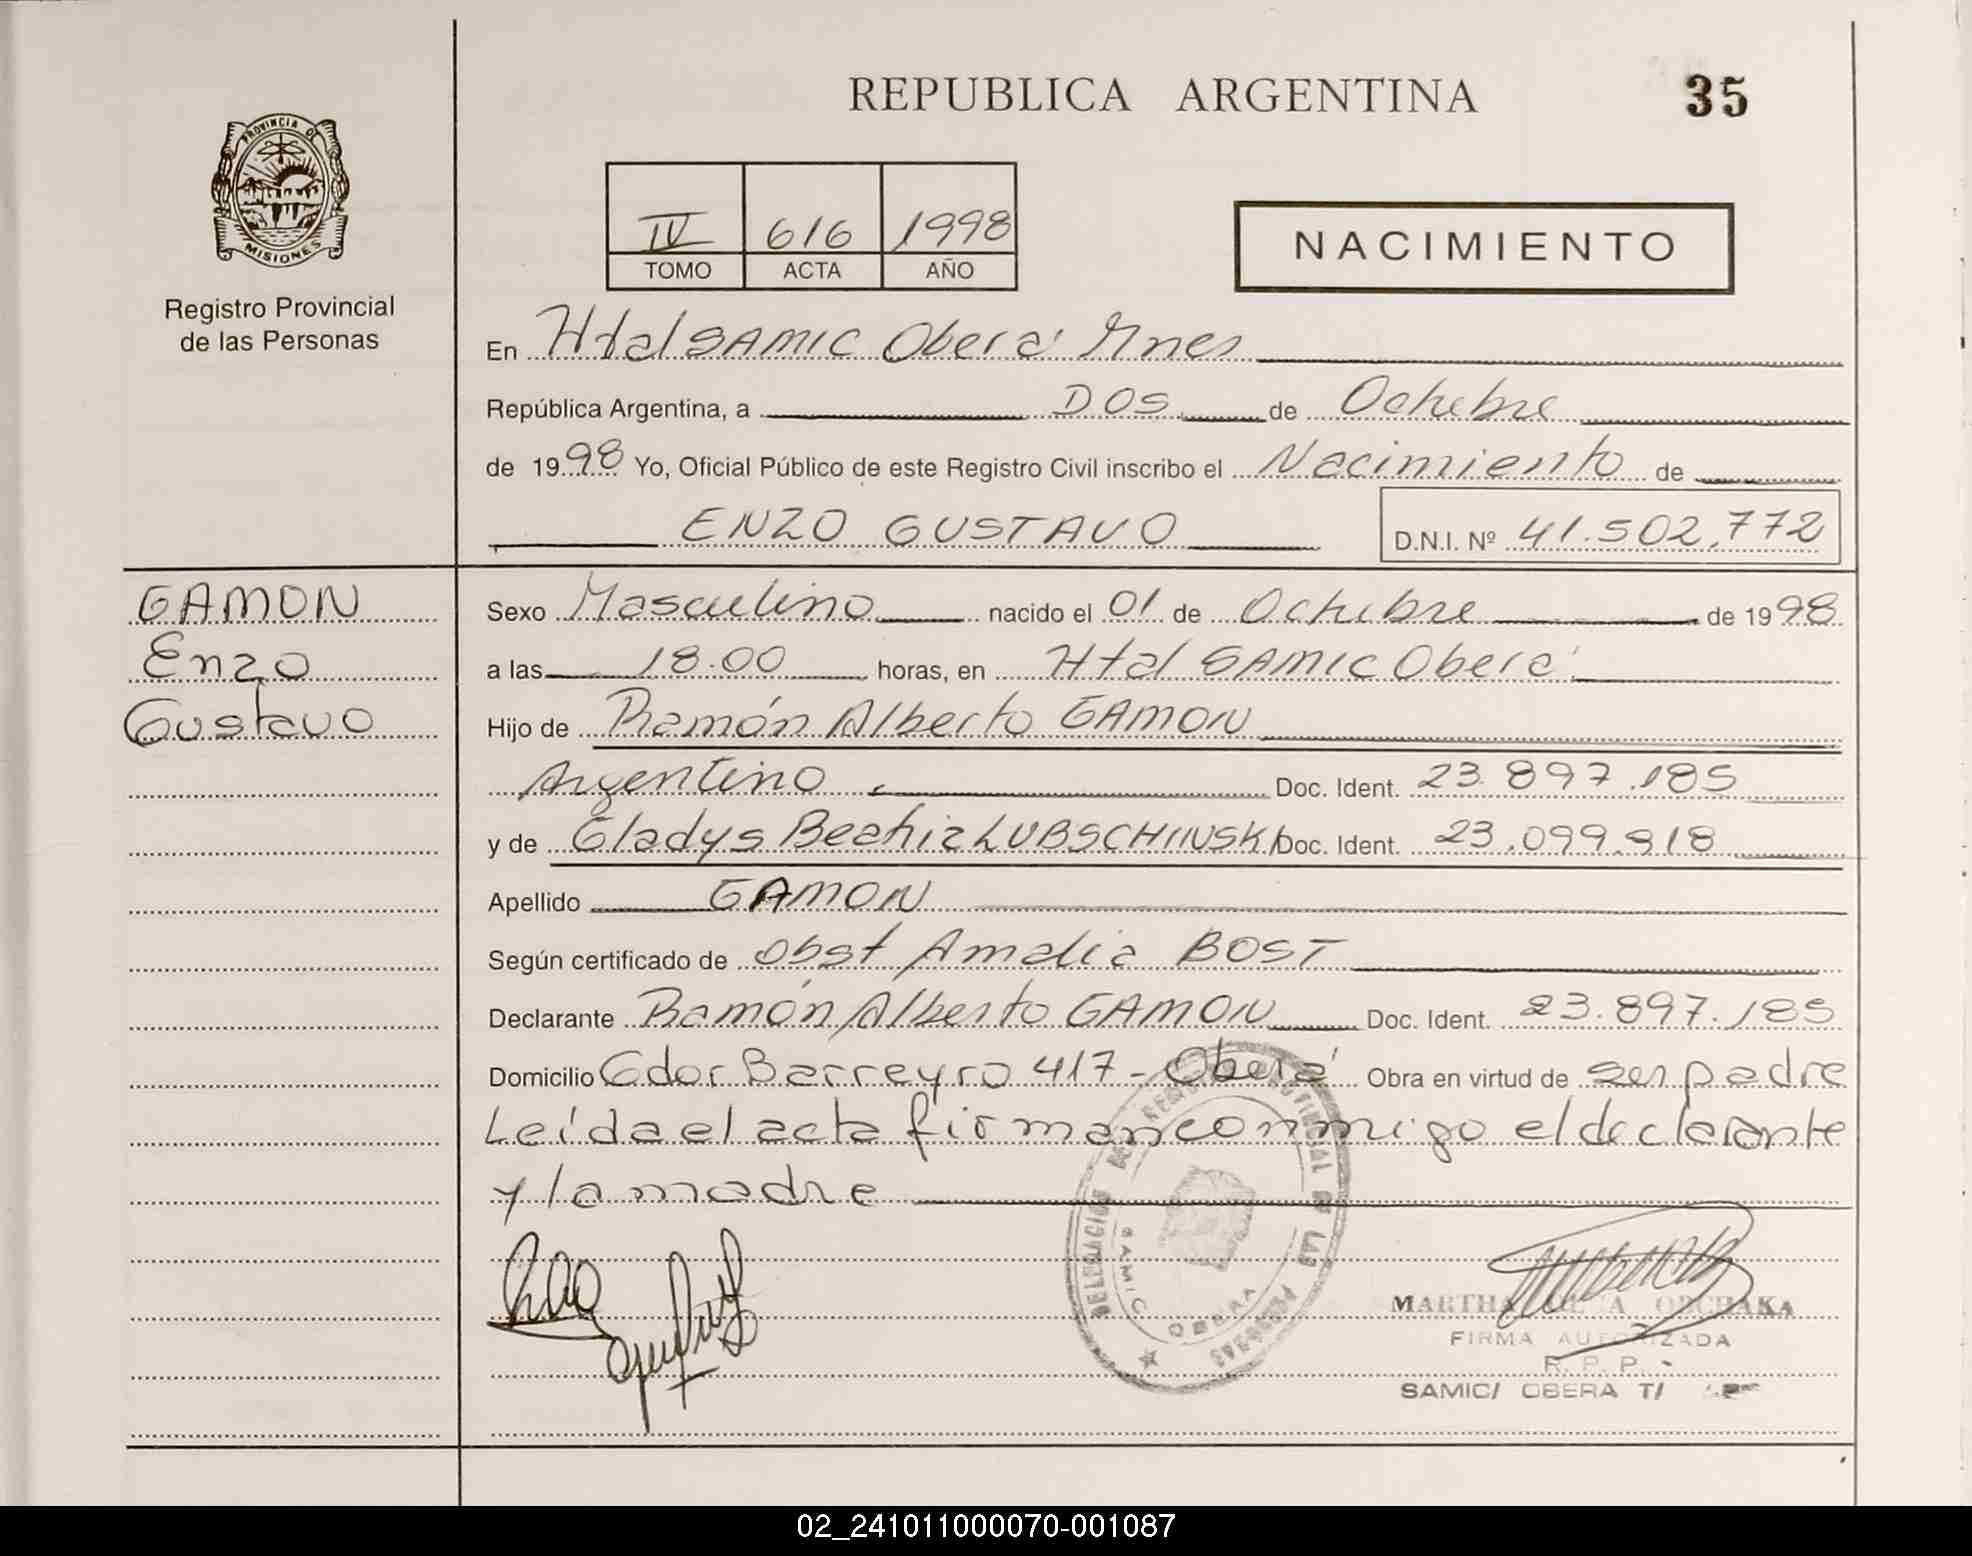 REPUBLICA ARGENTINA
35
PROVINCIA DE
MISIONES
Registro Provincial
de las Personas
IV 616 1998
TOMO ACTA AÑO
NACIMIENTO
En Htal SAMIC Oberá Mnes
República Argentina, a DOS de Octubre
de 1998 Yo, Oficial Público de este Registro Civil inscribo el Nacimiento de
ENZO GUSTAVO D.N.I. Nº 41.502.772
GAMON
Enzo
Gustavo
Sexo Masculino nacido el 01 de Octubre de 1998
a las 18.00 horas, en Htal SAMIC Oberá
Hijo de Ramón Alberto GAMON
Argentino, Doc. Ident. 23.897.185
y de Gladys Beatriz LUBSCHINSKI Doc. Ident. 23.099.918
Apellido GAMON
Según certificado de Obst Amalia BOST
Declarante Ramón Alberto GAMON Doc. Ident. 23.897.185
Domicilio Gdor Barreyro 417 - Oberá Obra en virtud de ser padre
Leída el acta firman conmigo el declarante
y la madre
DELEGACION DEL REGISTRO PROVINCIAL DE LAS PERSONAS
SAMIC OBERA
MARTHA
FIRMA AUTORIZADA
R. P. P.
SAMIC/ OBERA
02_241011000070-001087